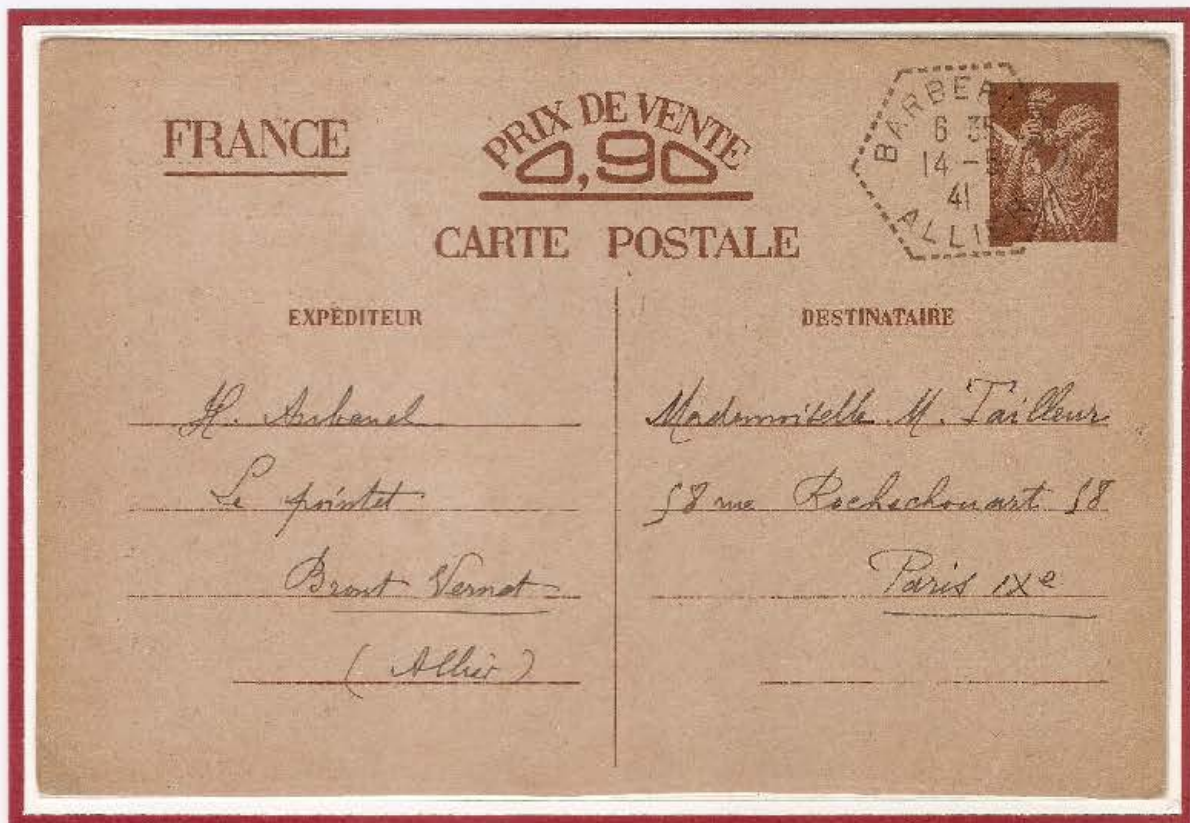 FRANCE
PRIX DE VENTE
0,90
CARTE POSTALE
BARBER
6 35
14 -5
41
ALLIER
EXPÉDITEUR
H. Aubanel
Le pointet
Brout Vernet
(Allier)
DESTINATAIRE
Mademoiselle M. Tailleur
58 rue Rochechouart 58
Paris IXe